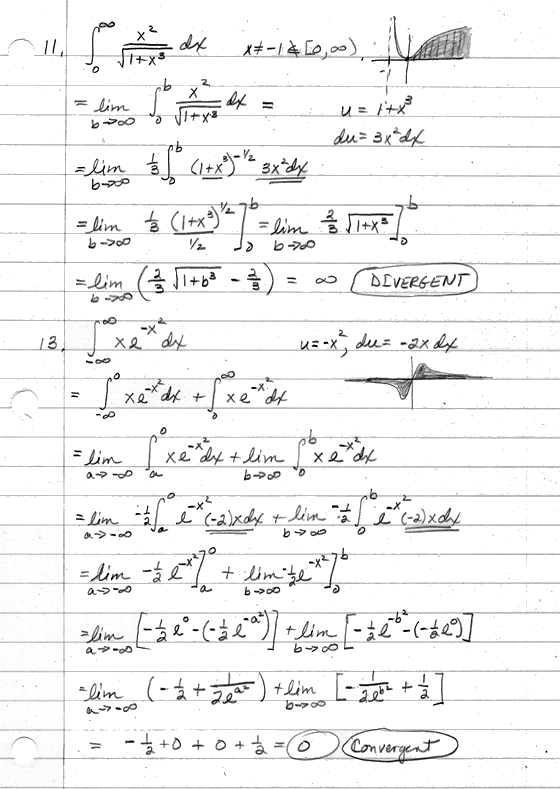 11. ∫_0^∞ x²/√(1+x³) dx   x≠-1 & [0,∞).
= lim_{b→∞} ∫_0^b x²/√(1+x³) dx =   u = 1+x³
du = 3x²dx
= lim_{b→∞} 1/3 ∫_0^b (1+x³)^{-1/2} 3x²dx
= lim_{b→∞} 1/3 (1+x³)^{1/2}/(1/2) ]_0^b = lim_{b→∞} 2/3 √(1+x³) ]_0^b
= lim_{b→∞} (2/3 √(1+b³) - 2/3) = ∞ DIVERGENT
13. ∫_{-∞}^∞ xe^{-x²}dx   u=-x², du = -2xdx
= ∫_{-∞}^0 xe^{-x²}dx + ∫_0^∞ xe^{-x²}dx
= lim_{a→-∞} ∫_a^0 xe^{-x²}dx + lim_{b→∞} ∫_0^b xe^{-x²}dx
= lim_{a→-∞} -1/2 ∫_a^0 e^{-x²}(-2)xdx + lim_{b→∞} -1/2 ∫_0^b e^{-x²}(-2)xdx
= lim_{a→-∞} -1/2 e^{-x²} ]_a^0 + lim_{b→∞} -1/2 e^{-x²} ]_0^b
= lim_{a→-∞} [-1/2 e^0 - (-1/2 e^{-a²})] + lim_{b→∞} [-1/2 e^{-b²} - (-1/2 e^0)]
= lim_{a→-∞} (-1/2 + 1/(2e^{a²})) + lim_{b→∞} [-1/(2e^{b²}) + 1/2]
= -1/2 + 0 + 0 + 1/2 = 0 Convergent